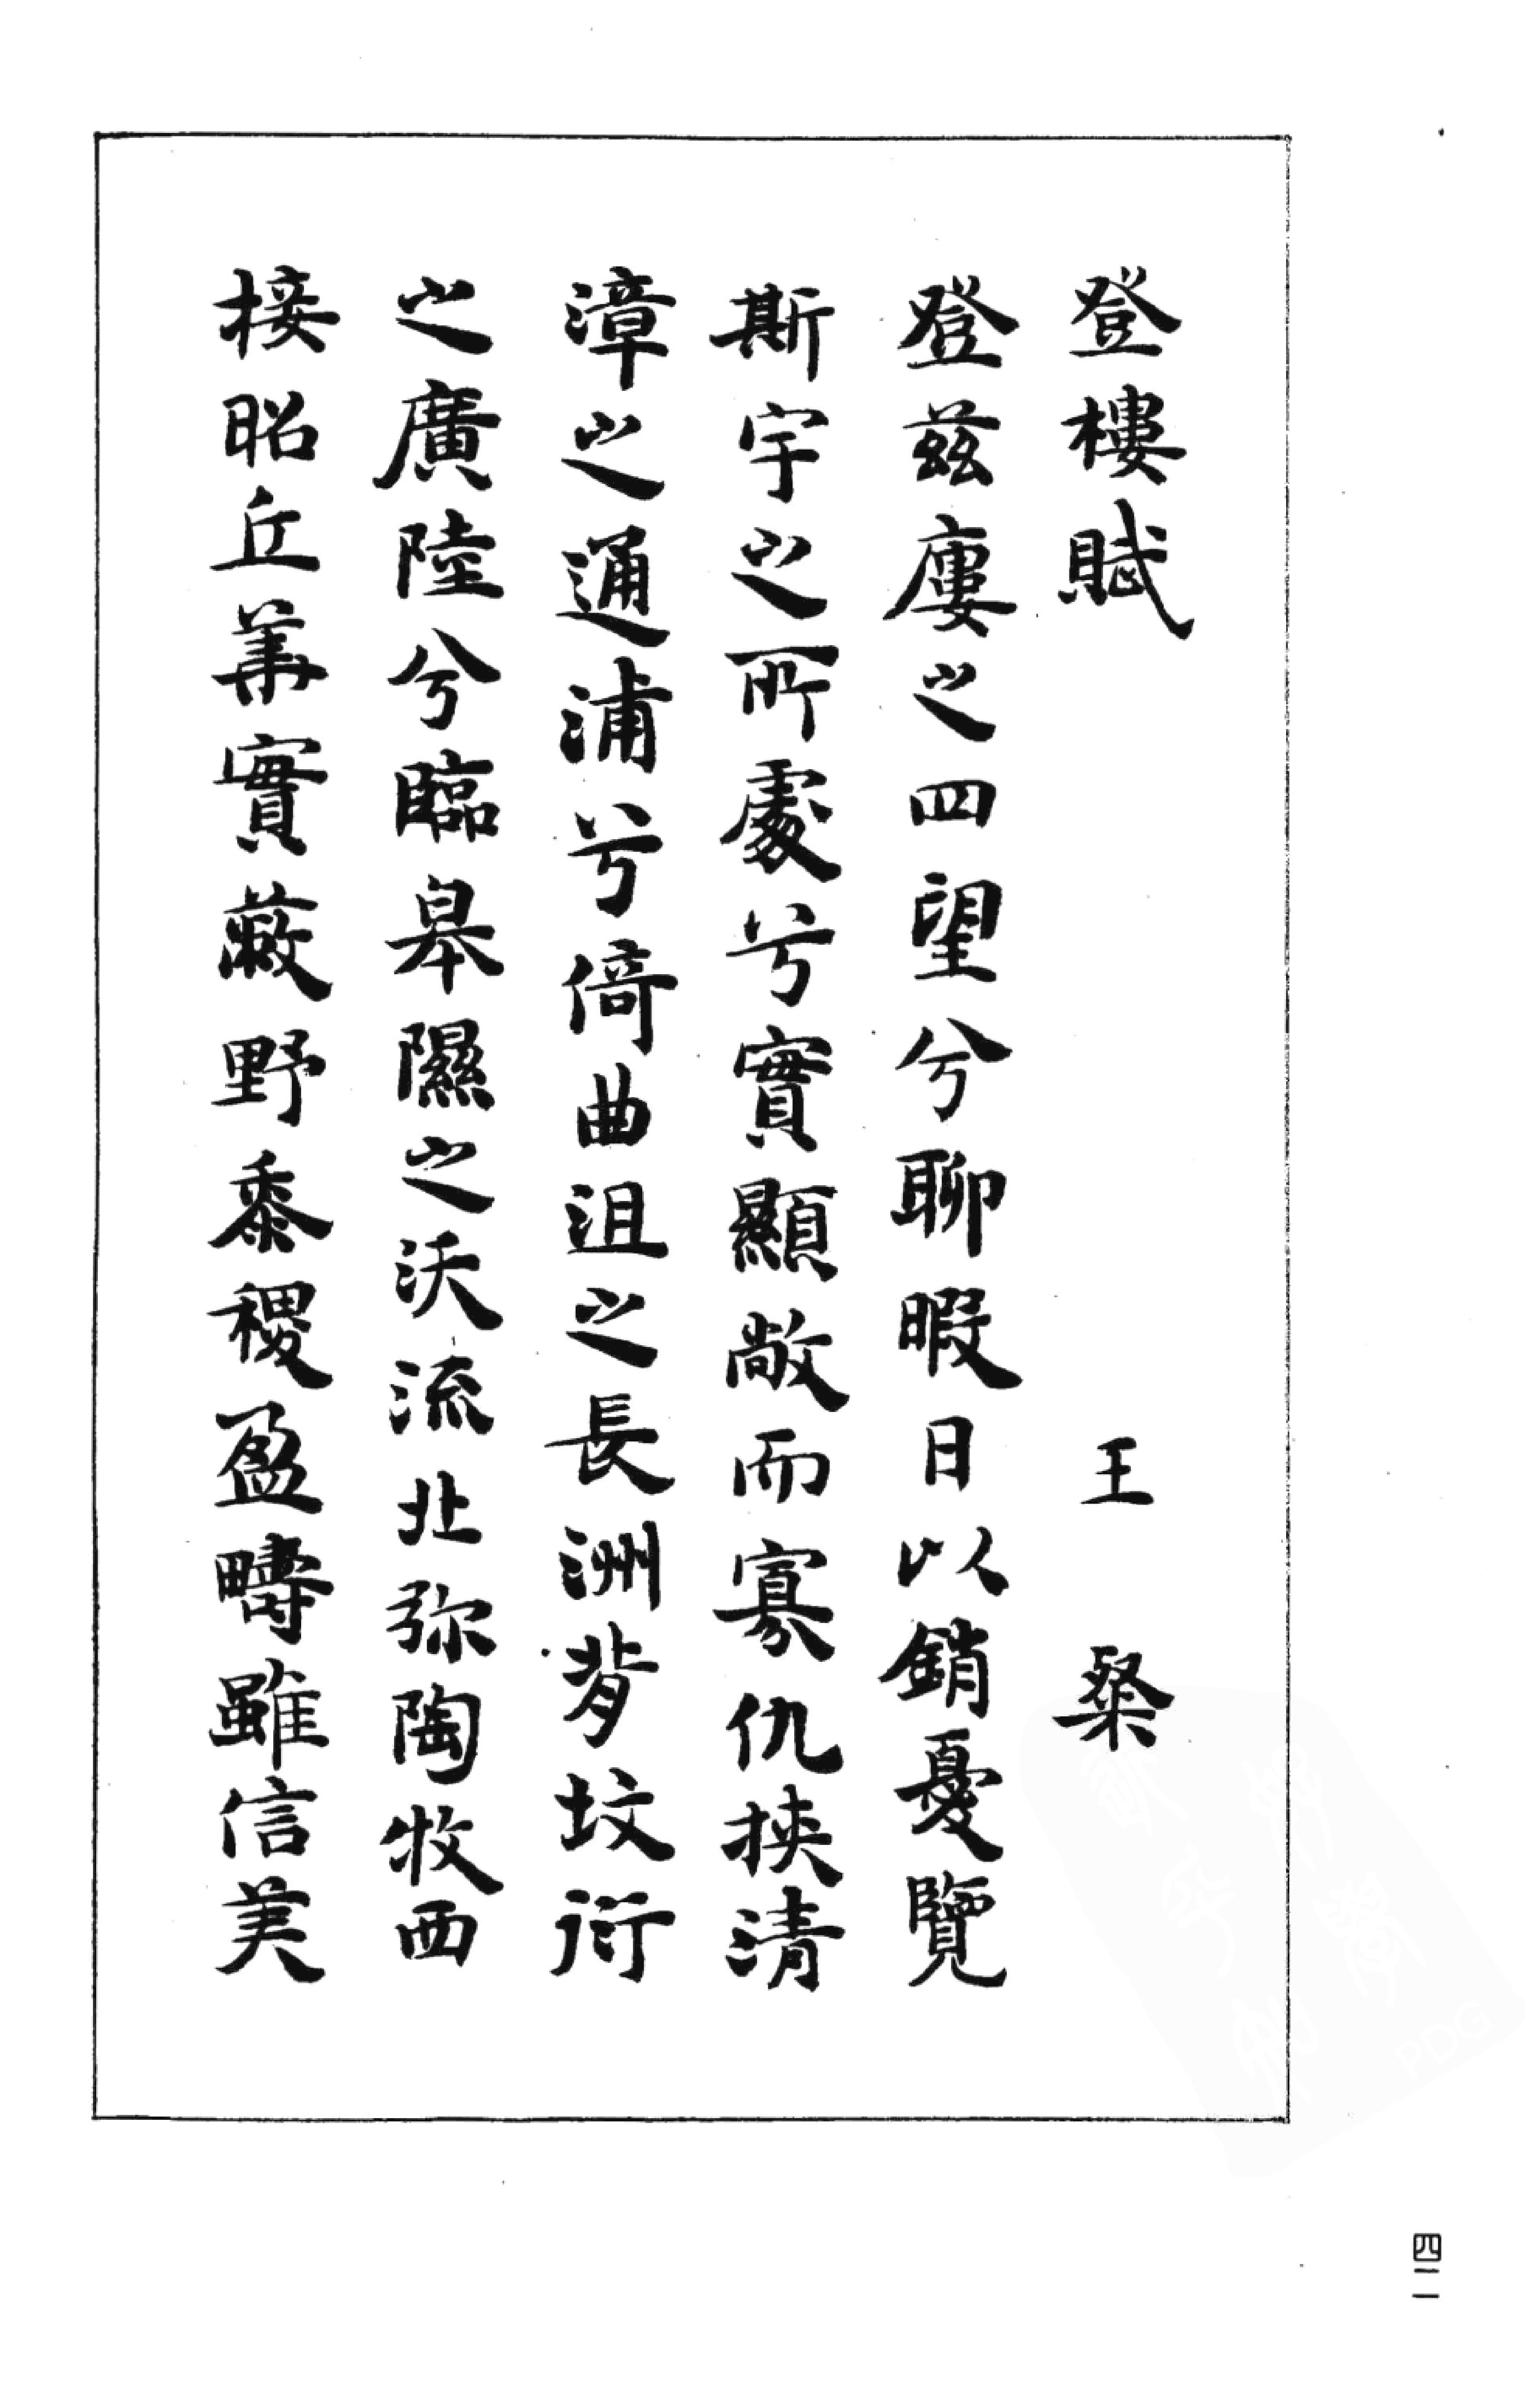 登樓賦 王粲
登茲廔之四望兮聊暇日以銷憂覽
斯宇之所處兮實顯敞而寡仇挾清
漳之通浦兮倚曲沮之長洲背墳衍
之廣陸兮臨皋隰之沃流北弥陶牧西
接昭丘華實蔽野黍稷盈疇雖信美
四二
PDG